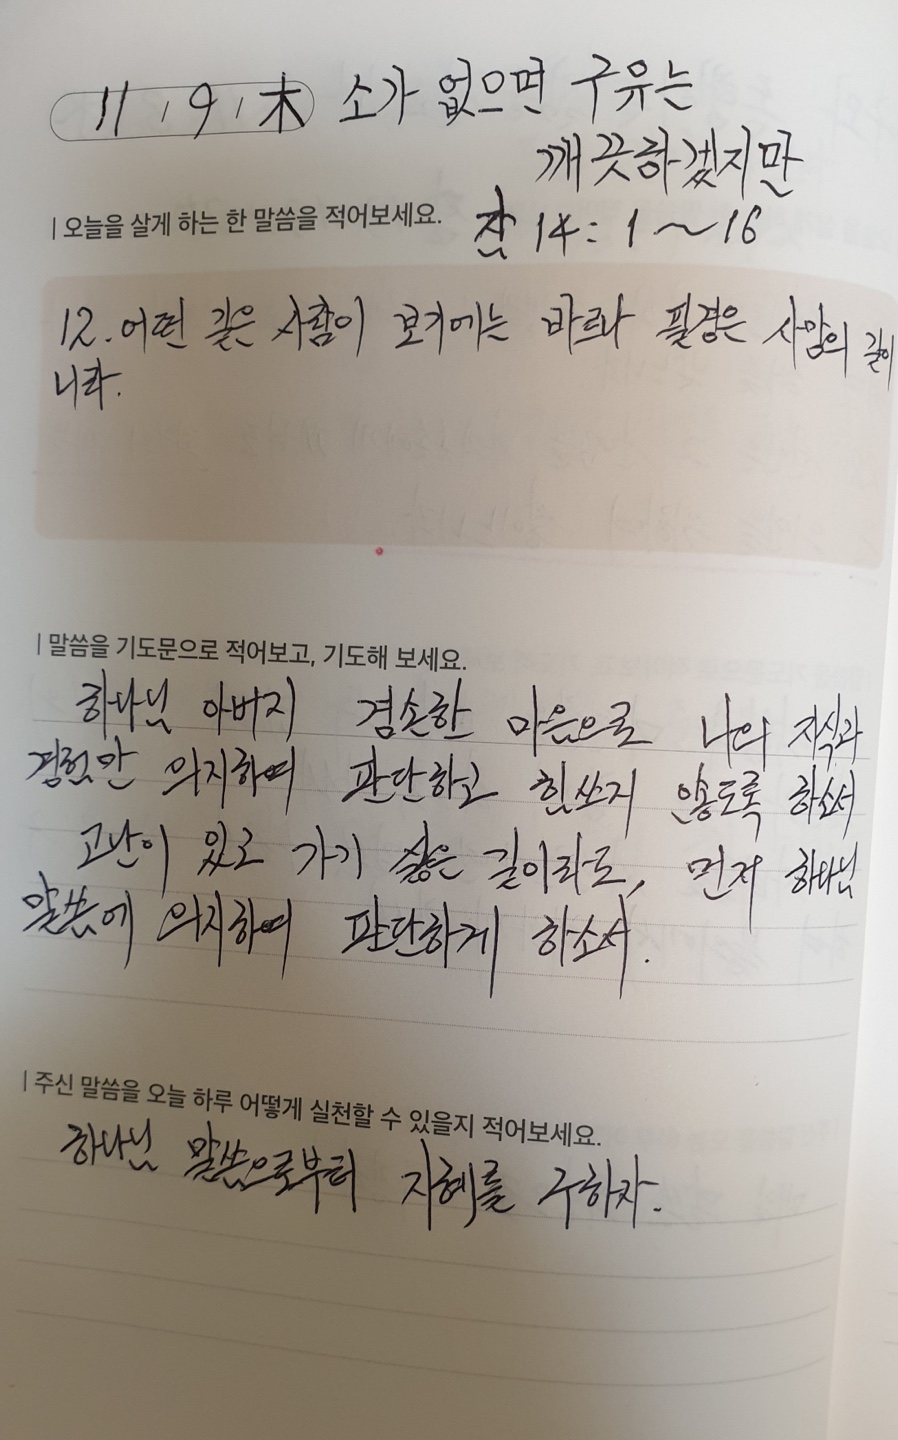 11 , 9 , 木 소가 없으면 구유는
깨끗하겠지만
| 오늘을 살게 하는 한 말씀을 적어보세요.
잠 14 : 1 ~ 16
12. 어떤 길은 사람이 보기에는 바르나 필경은 사망의 길이
니라.
| 말씀을 기도문으로 적어보고, 기도해 보세요.
하나님 아버지 겸손한 마음으로 나의 지식과
경험만 의지하여 판단하고 힘쓰지 않도록 하소서
고난이 있고 가기 싫은 길이라도, 먼저 하나님
말씀에 의지하여 판단하게 하소서.
| 주신 말씀을 오늘 하루 어떻게 실천할 수 있을지 적어보세요.
하나님 말씀으로부터 지혜를 구하자.